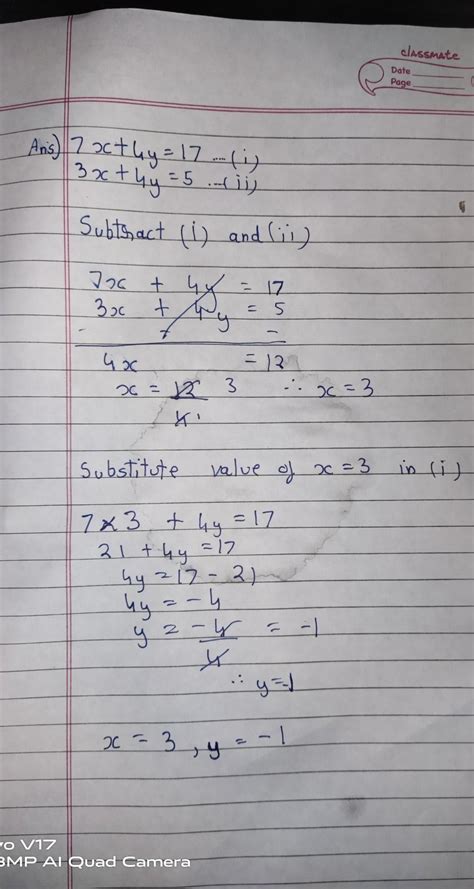 classmate
Date
Page
Ans) 7x + 4y = 17 ---(i)
3x + 4y = 5 ---(ii)
Subtract (i) and (ii)
7x + 4y = 17
3x + 4y = 5
- - -
4x = 12
x = 12 3 ∴ x = 3
4 1
Substitute value of x = 3 in (i)
7 × 3 + 4y = 17
21 + 4y = 17
4y = 17 - 21
4y = -4
y = -4 = -1
4
∴ y = -1
x = 3, y = -1
o V17
8MP AI Quad Camera